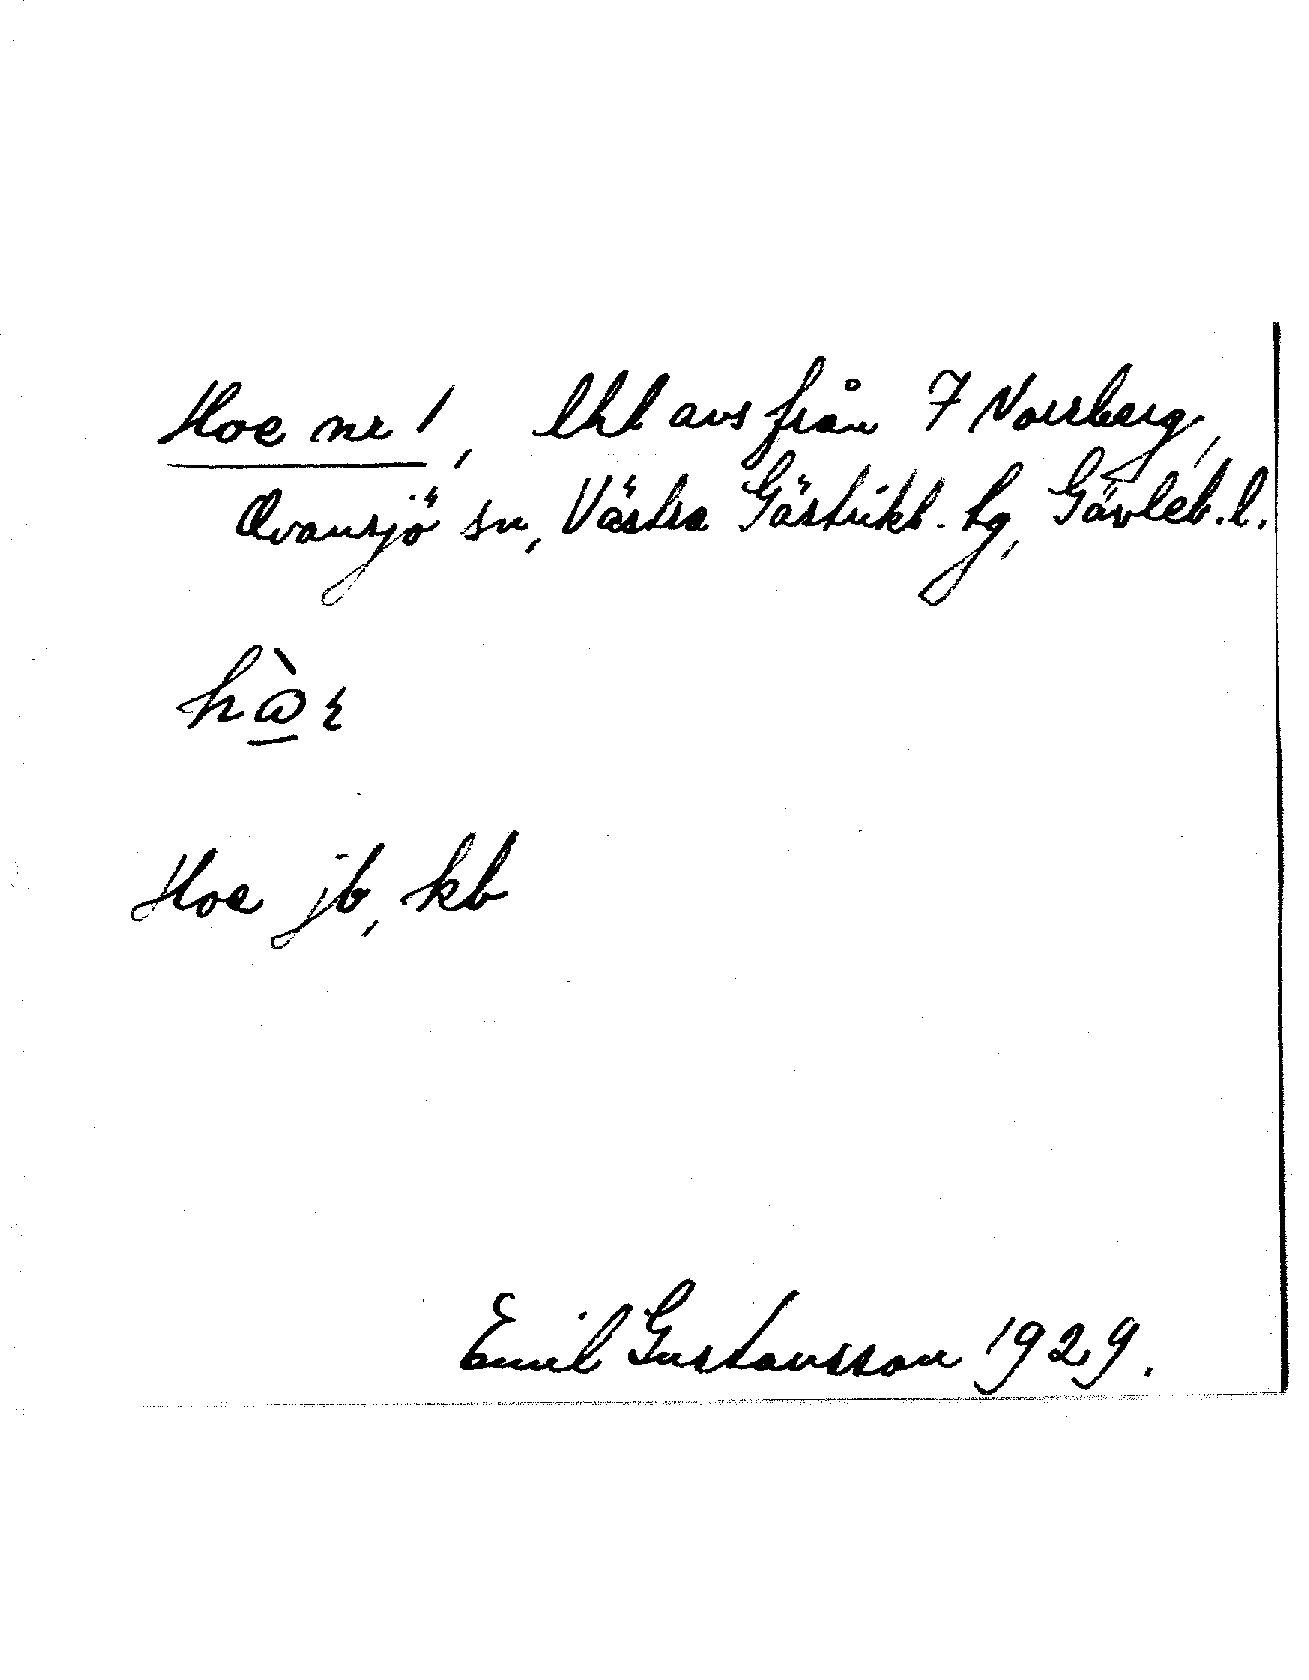 Hoe nr 1, lht avs från 7 Norrberg,
Ovansjö sn, Västra Gästrikl. tg, Gävleb. l.
Hoe jb, kb
Emil Gustavsson 1929.